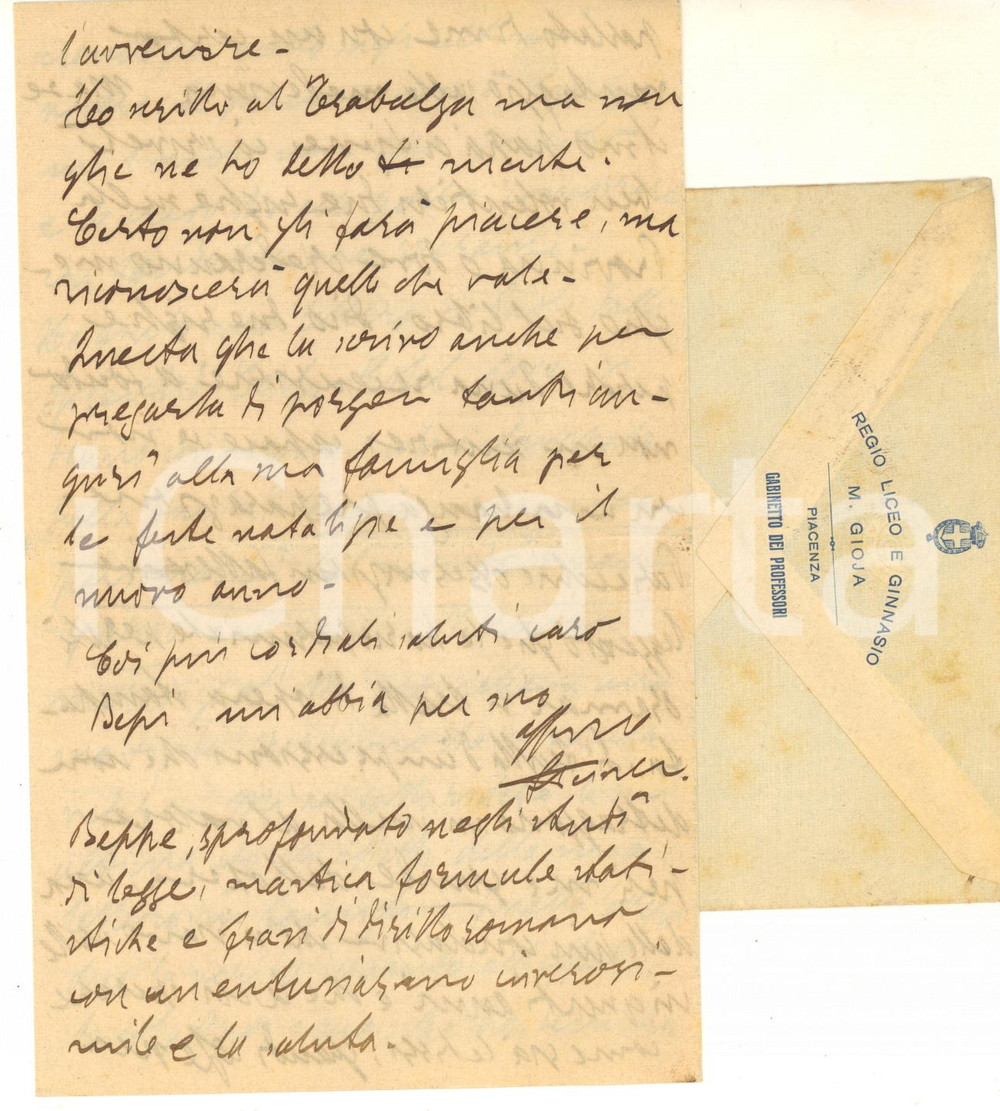 l'avvenire -
Ho scritto al Trabalza ma non
glie ne ho detto niente.
Certo non gli farà piacere, ma
riconoscerà quello che vale -
Questa glie la scrivo anche per
pregarla di porger tanti au-
guri alla sua famiglia per
le feste natalizie e per il
nuovo anno -
Coi più cordiali saluti caro
Bepi mi abbia per suo
affmo
Beppe, sprofondato negli studi
di legge, mastica formule stati-
stiche e frasi di diritto romano
con un entusiasmo inverosi-
mile e la saluta -
REGIO LICEO E GINNASIO
M. GIOJA
PIACENZA
GABINETTO DEI PROFESSORI
iCharta